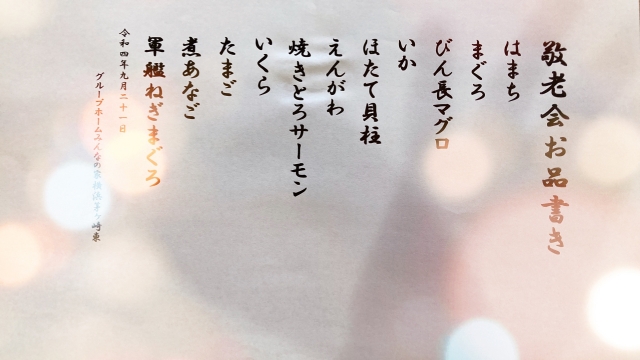 敬老会お品書き
はまち
まぐろ
びん長マグロ
いか
ほたて貝柱
えんがわ
焼きとろサーモン
いくら
たまご
煮あなご
軍艦ねぎまぐろ
令和四年九月二十一日
グループホームみんなの家横浜茅ヶ崎東